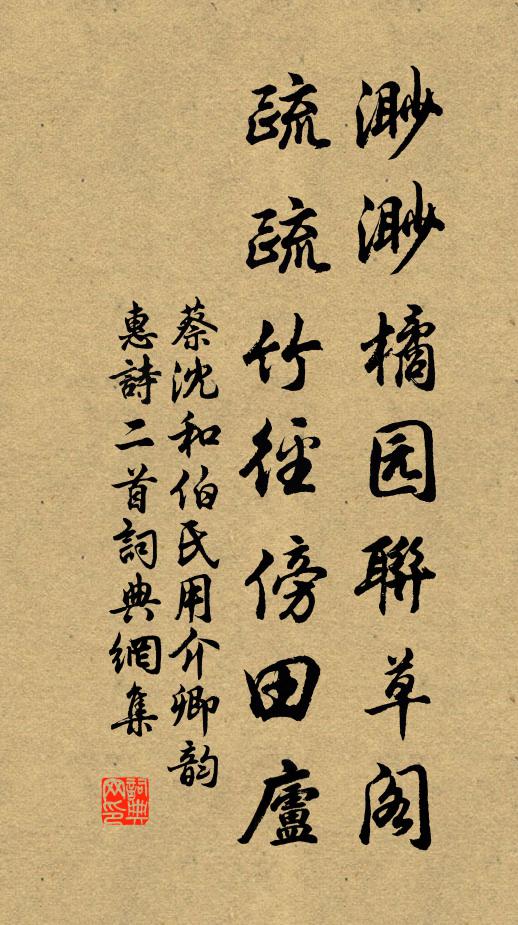 渺渺橘园聯草阁
疏疏竹徑傍田廬
蔡沈和伯氏用介卿韵
惠詩二首詞典網集
詞典
网印